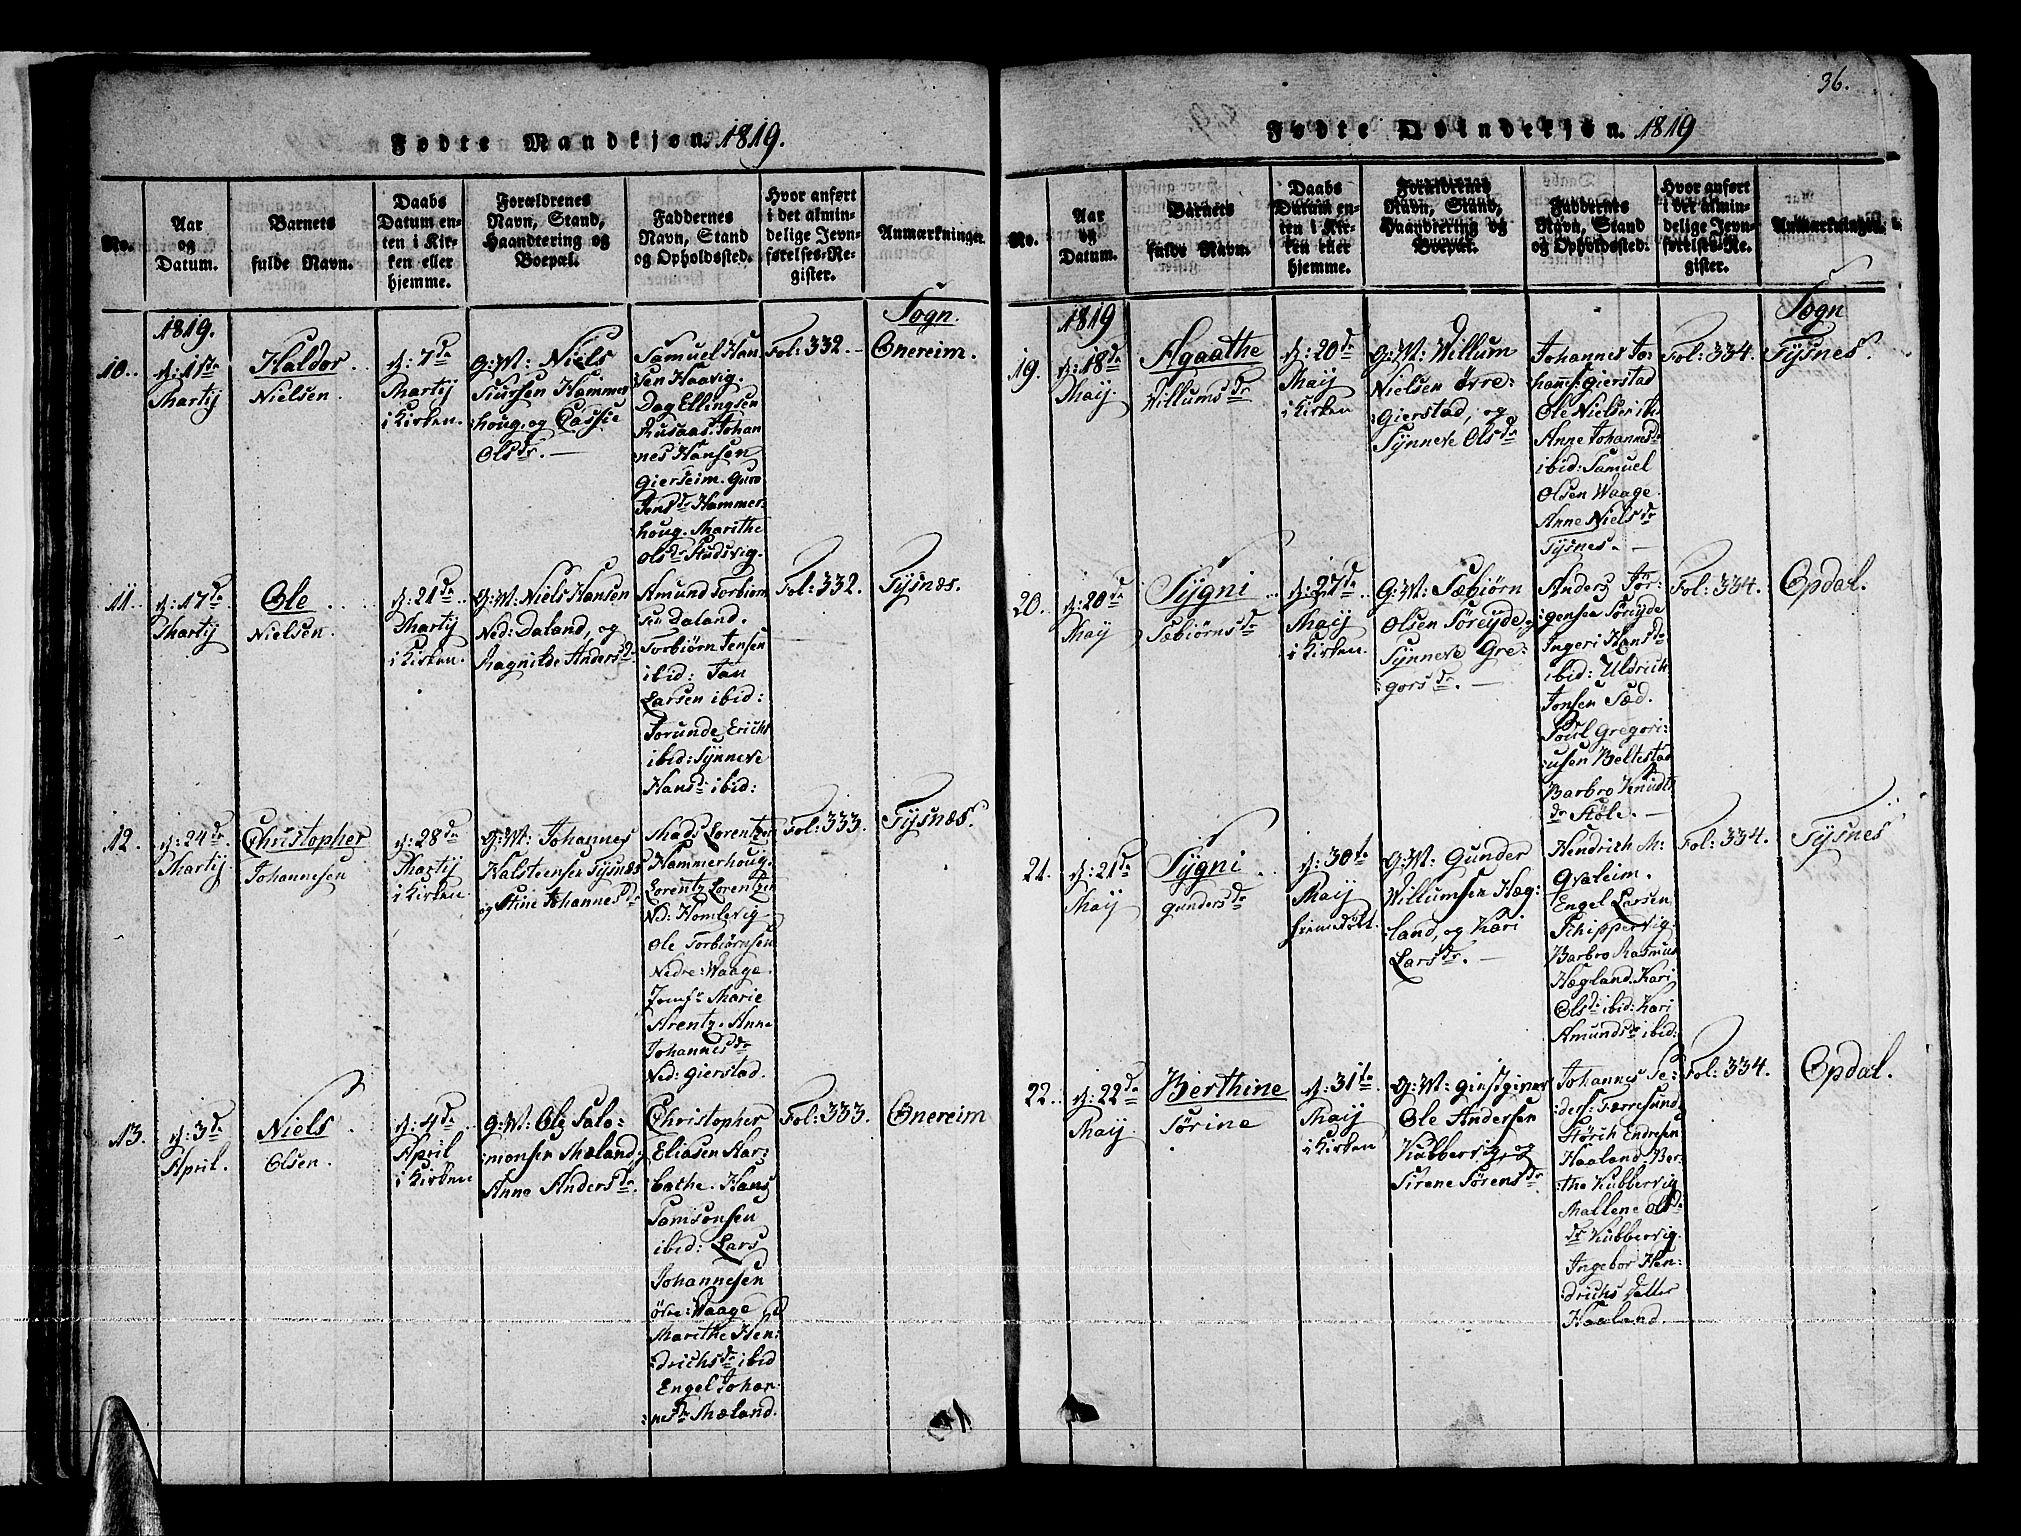 Fødte Mandkjøn. 1819.
No.
Aar
og
Datum.
Barnets
fulde Navn.
Daabs
Datum en-
ten i Kir-
ken eller
hjemme.
Forældrenes
Navn, Stand,
Haandtering og
Boepæl.
Faddernes
Navn, Stand
og Opholdssted.
Hvor anført
i det almin-
delige Jevn-
førelses-Re-
gister.
Anmærkninger.
10.
1819.
d: 1ste
Martij
Haldor
Nielsen.
d: 7de
Martij
i Kirken.
G: M: Niels
Siursen Hammer
houg, og Cassie
Olsdr. —
Samuel Han
sen Haavig.
Dag Ellingsen
Johan
nes Hansen
Gierseim. Guro
Jensdr Hammer
houg. Marithe
Olsdr Hudsvig.
Fol: 332.
Sogn.
Onereim.
11.
d: 17de
Martij
Ole
Nielsen.
d: 21de
Martij
i Kirken.
G: M: Niels Hansen
Ned: Daland, og
Ragnilde Andersd
Amund Torbiørn
sen Daland.
Torbiørn Jensen
ibid: Jan
Larsen ibid:
Jorunde Erichs
ibid: Synneve
Hansd: ibid:
Fol: 332.
Tysnæs.
12.
d: 24de
Martij.
Christopher
Johannesen
d: 28de
Martij
i Kirken
G: M: Johannes
Halsteensen Tysnæs
og Stine Johannesdr
Mads Lorentzen
Hammerhoug.
Lorentz Lorentzen
Nd: Homlevig.
Ole Torbiørnsen
Nedre: Waage.
Jomfr Marie
Arentz. Anne
Johannesdr
Ned: Gierstad.
Fol: 333.
Tysnæs.
13.
d: 3de
April.
Niels
Olsen.
d: 4de
April
i Kirken
G: M: Ole Salo-
monsen Mæland,
Anne Andersdr
Christopher
Eliasen Har-
bathe. Hans
Samsonsen
ibid: Lars
Johannesen
Øvre: Waage
Marithe Hen:
drichsdr ibid
Engel Johan-
nesdr Mæland.
Fol: 333.
Onereim
36.
Fødte Qvindekjøn. 1819
No.
Aar
og
Datum.
Barnets
fulde Navn.
Daabs
Datum en-
ten i Kir-
ken eller
hjemme.
Forældrenes
Navn, Stand,
Haandtering og
Boepæl.
Faddernes
Navn, Stand
og Opholdssted.
Hvor anført
i det almin-
delige Jevn-
førelses-Re-
gister.
Anmærkninger.
19.
1819
d: 18de
Maij.
Agaathe
Willumsdr
d: 20de
Maij
i Kirken
G: M: Willum
Nielsen Övre:
Gierstad, og
Synneve Olsdr
Johannes Jo-
hannes: Gierstad
Ole Nielsen ib:
Anne Johannesd
ibid: Samuel
Olsen Waage.
Anne Nielsdr
Tysnes. —
Fol: 334.
Sogn
Tysnes.
20.
d: 20de
Maij
Sygni
Sæbiørnsdr
d: 27de
Maij
i Kirken.
G: M: Sæbiørn
Olsen Söreyde,
Synneve Gre:
gorsdr. —
Anders Jør-
gensen Søreyde
Ingeri Hansdr
ibid: Uldrich
Jonsen Sæd.
Poul Gregori:
usen Beltestad
Barbro Knudts
dr Støle. —
Fol: 334.
Opdal.
21.
d: 21de
Maij
Sygni
Gundersdr
d: 30te
Maij
G: M: Gunder
Willumsen Hæg:
land, og Kari
Larsdr. —
Hendrich M:
Gvaleim.
Engel Larsen
Schippervig.
Barbro Rasmus
Hægland. Kari
Olsdr ibid: Kari
Amundsdr ibid:
Fol: 334.
Tysnes
22.
d: 22de
Maij.
Berthine
Sørine
d: 31te
Maij
i Kirken
G: M:
Ole Andersen
Kubbervig, og
Sirene Sørensdr
Johannes Pe-
ders: Færresund
Störch Endresen
Haaland. Ber-
the Kubbervig
Mallene Ols
dr Kubbervig.
Ingebor Hen:
drichs datter
Haaland.
Fol: 334.
Opdal.